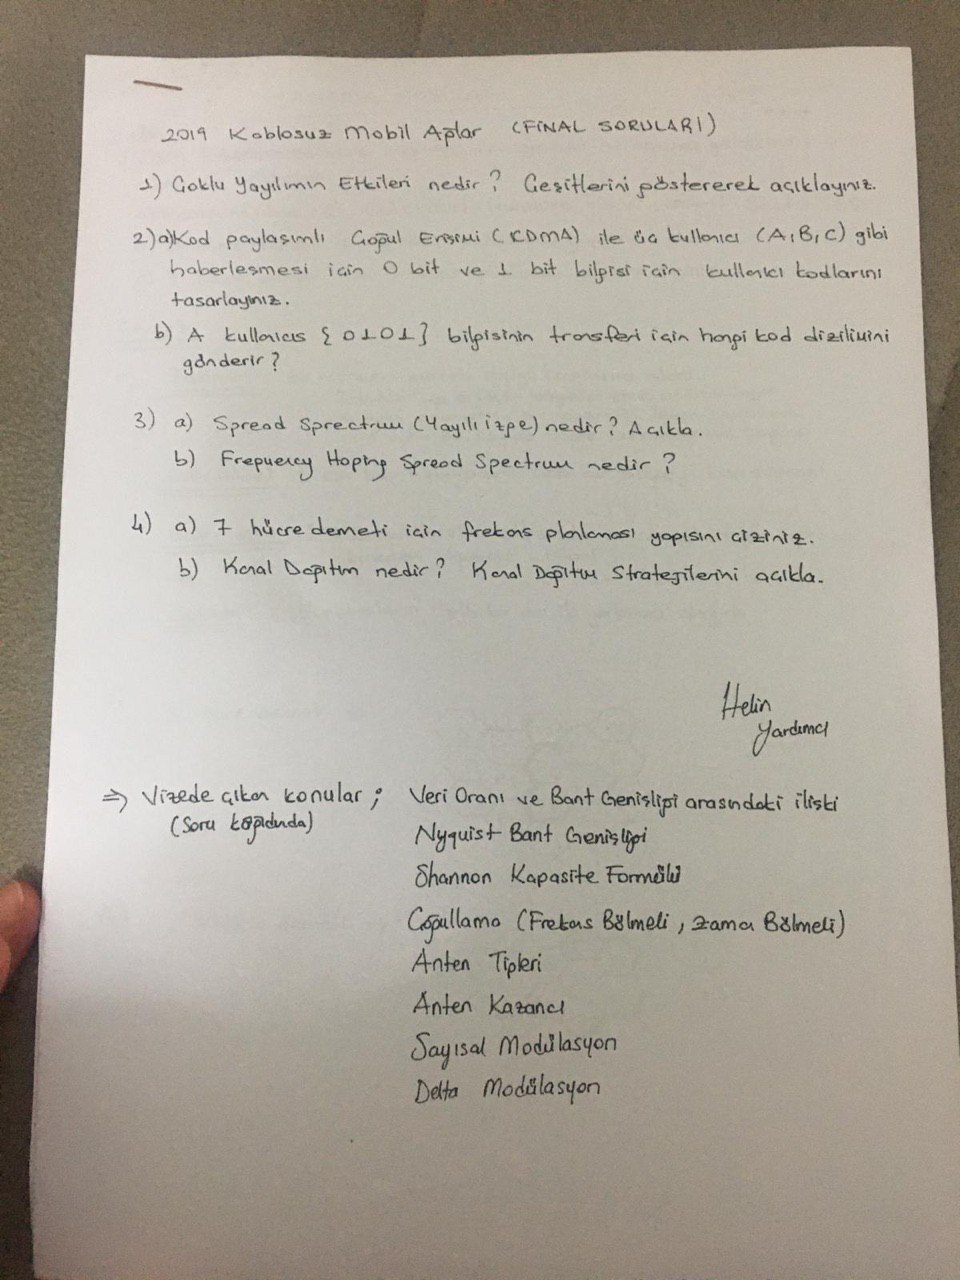 2019 Kablosuz Mobil Ağlar (FİNAL SORULARI)
1) Çoklu Yayılımın Etkileri nedir? Çeşitlerini göstererek açıklayınız.
2) a) Kod paylaşımlı Çoğul Erişimi (CDMA) ile üç kullanıcı (A,B,C) gibi
haberleşmesi için 0 bit ve 1 bit bilgisi için kullanıcı kodlarını
tasarlayınız.
b) A kullanıcıs {0101} bilgisinin transferi için hangi kod dizilimini
gönderir?
3) a) Spread Sprectrum (Yayılı izge) nedir? Açıkla.
b) Frequency Hoping Spread Spectrum nedir?
4) a) 7 hücre demeti için frekans planlaması yapısını çiziniz.
b) Kanal Dağıtım nedir? Kanal Dağıtım Stratejilerini açıkla.
Helin
Yardımcı
⇒ Vizede çıkan konular; Veri Oranı ve Bant Genişliği arasındaki ilişki
(Soru kağıdında) Nyquist Bant Genişliği
Shannon Kapasite Formülü
Çoğullama (Frekans Bölmeli, zaman Bölmeli)
Anten Tipleri
Anten Kazancı
Sayısal Modülasyon
Delta Modülasyon